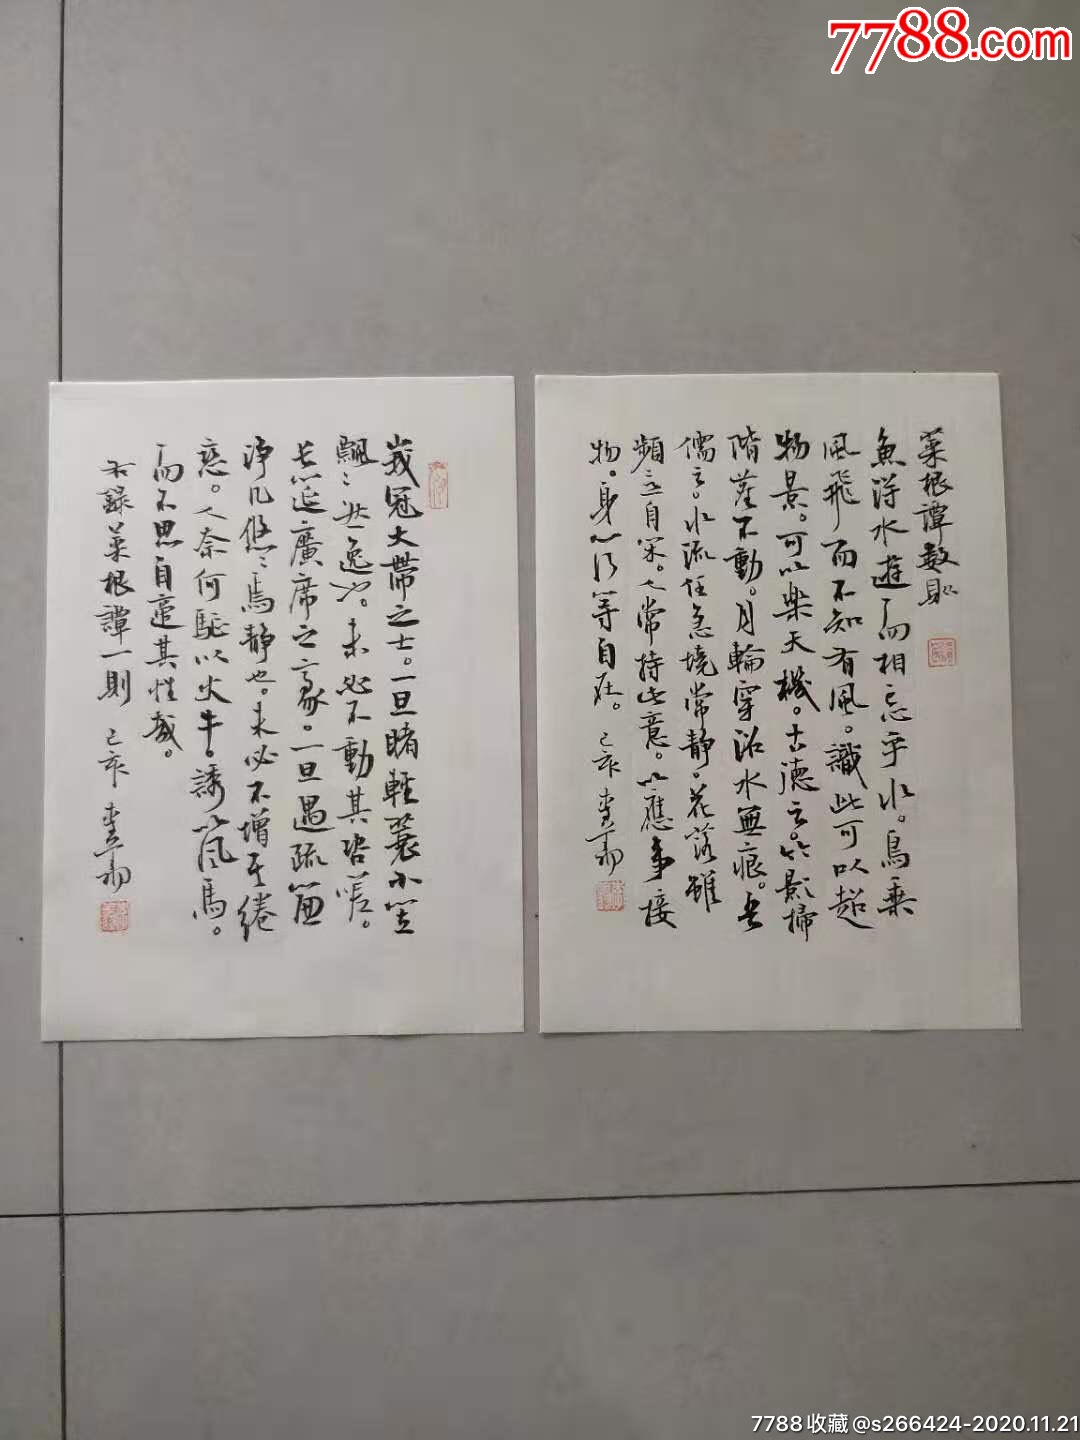 7788.com
菜根譚數則
魚得水遊而相忘乎水。鳥乘
風飛而不知有風。識此可以超
物景。可以樂天機。古德云。竹影掃
階塵不動。月輪穿沼水無痕。吾
儒云。水流任急境常靜。花落雖
頻意自閑。人常持此意。以應事接
物。身心何等自在。己亥
峩冠大帶之士。一旦睹輕蓑小笠
飄飄然逸也。未必不動其咨嗟。
長筵廣席之豪。一旦遇疏簾
淨几悠悠焉靜也。未必不增其綣
戀。人奈何驅以火牛。誘以風馬。
而不思自適其性哉。
右錄菜根譚一則 己亥
7788收藏@s266424-2020.11.21